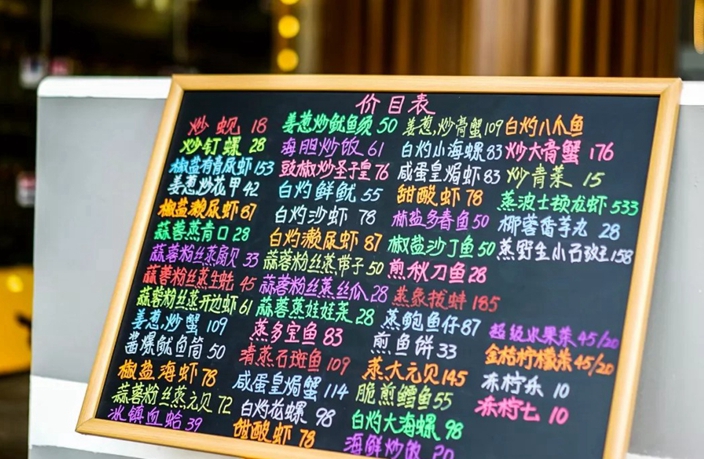 价目表
炒蚬 18
炒钉螺 28
椒盐有膏尿虾 153
姜葱炒花甲 42
椒盐濑尿虾 87
蒜蓉蒸青口 28
蒜蓉粉丝蒸扇贝 33
蒜蓉粉丝蒸生蚝 45
蒜蓉粉丝蒸开边虾 61
姜葱炒蟹 109
酱爆鱿鱼筒 50
椒盐海虾 78
蒜蓉粉丝蒸元贝 72
冰镇血蛤 39
姜葱炒鱿鱼须 50
海胆炒饭 61
豉椒炒圣子皇 76
白灼鲜鱿 55
白灼沙虾 78
白灼濑尿虾 87
蒜蓉粉丝蒸带子 50
蒜蓉粉丝蒸丝瓜 28
蒜蓉蒸娃娃菜 28
蒸多宝鱼 83
清蒸石斑鱼 109
咸蛋皇焗蟹 114
白灼花螺 98
甜酸虾 78
姜葱炒膏蟹 109
白灼小海螺 83
咸蛋皇焗虾 83
甜酸虾 78
椒盐多春鱼 50
椒盐沙丁鱼 50
煎秋刀鱼 28
蒸象拔蚌 185
蒸鲍鱼仔 87
煎鱼饼 33
蒸大元贝 145
脆煎鳕鱼 55
白灼大海螺 98
海鲜炒饭 20
白灼八爪鱼
炒大膏蟹 176
炒青菜 15
蒸波士顿龙虾 533
椰蓉香芋丸 28
蒸野生小石斑 158
超级水果茶 45/20
金桔柠檬茶 45/20
冻柠乐 10
冻柠七 10